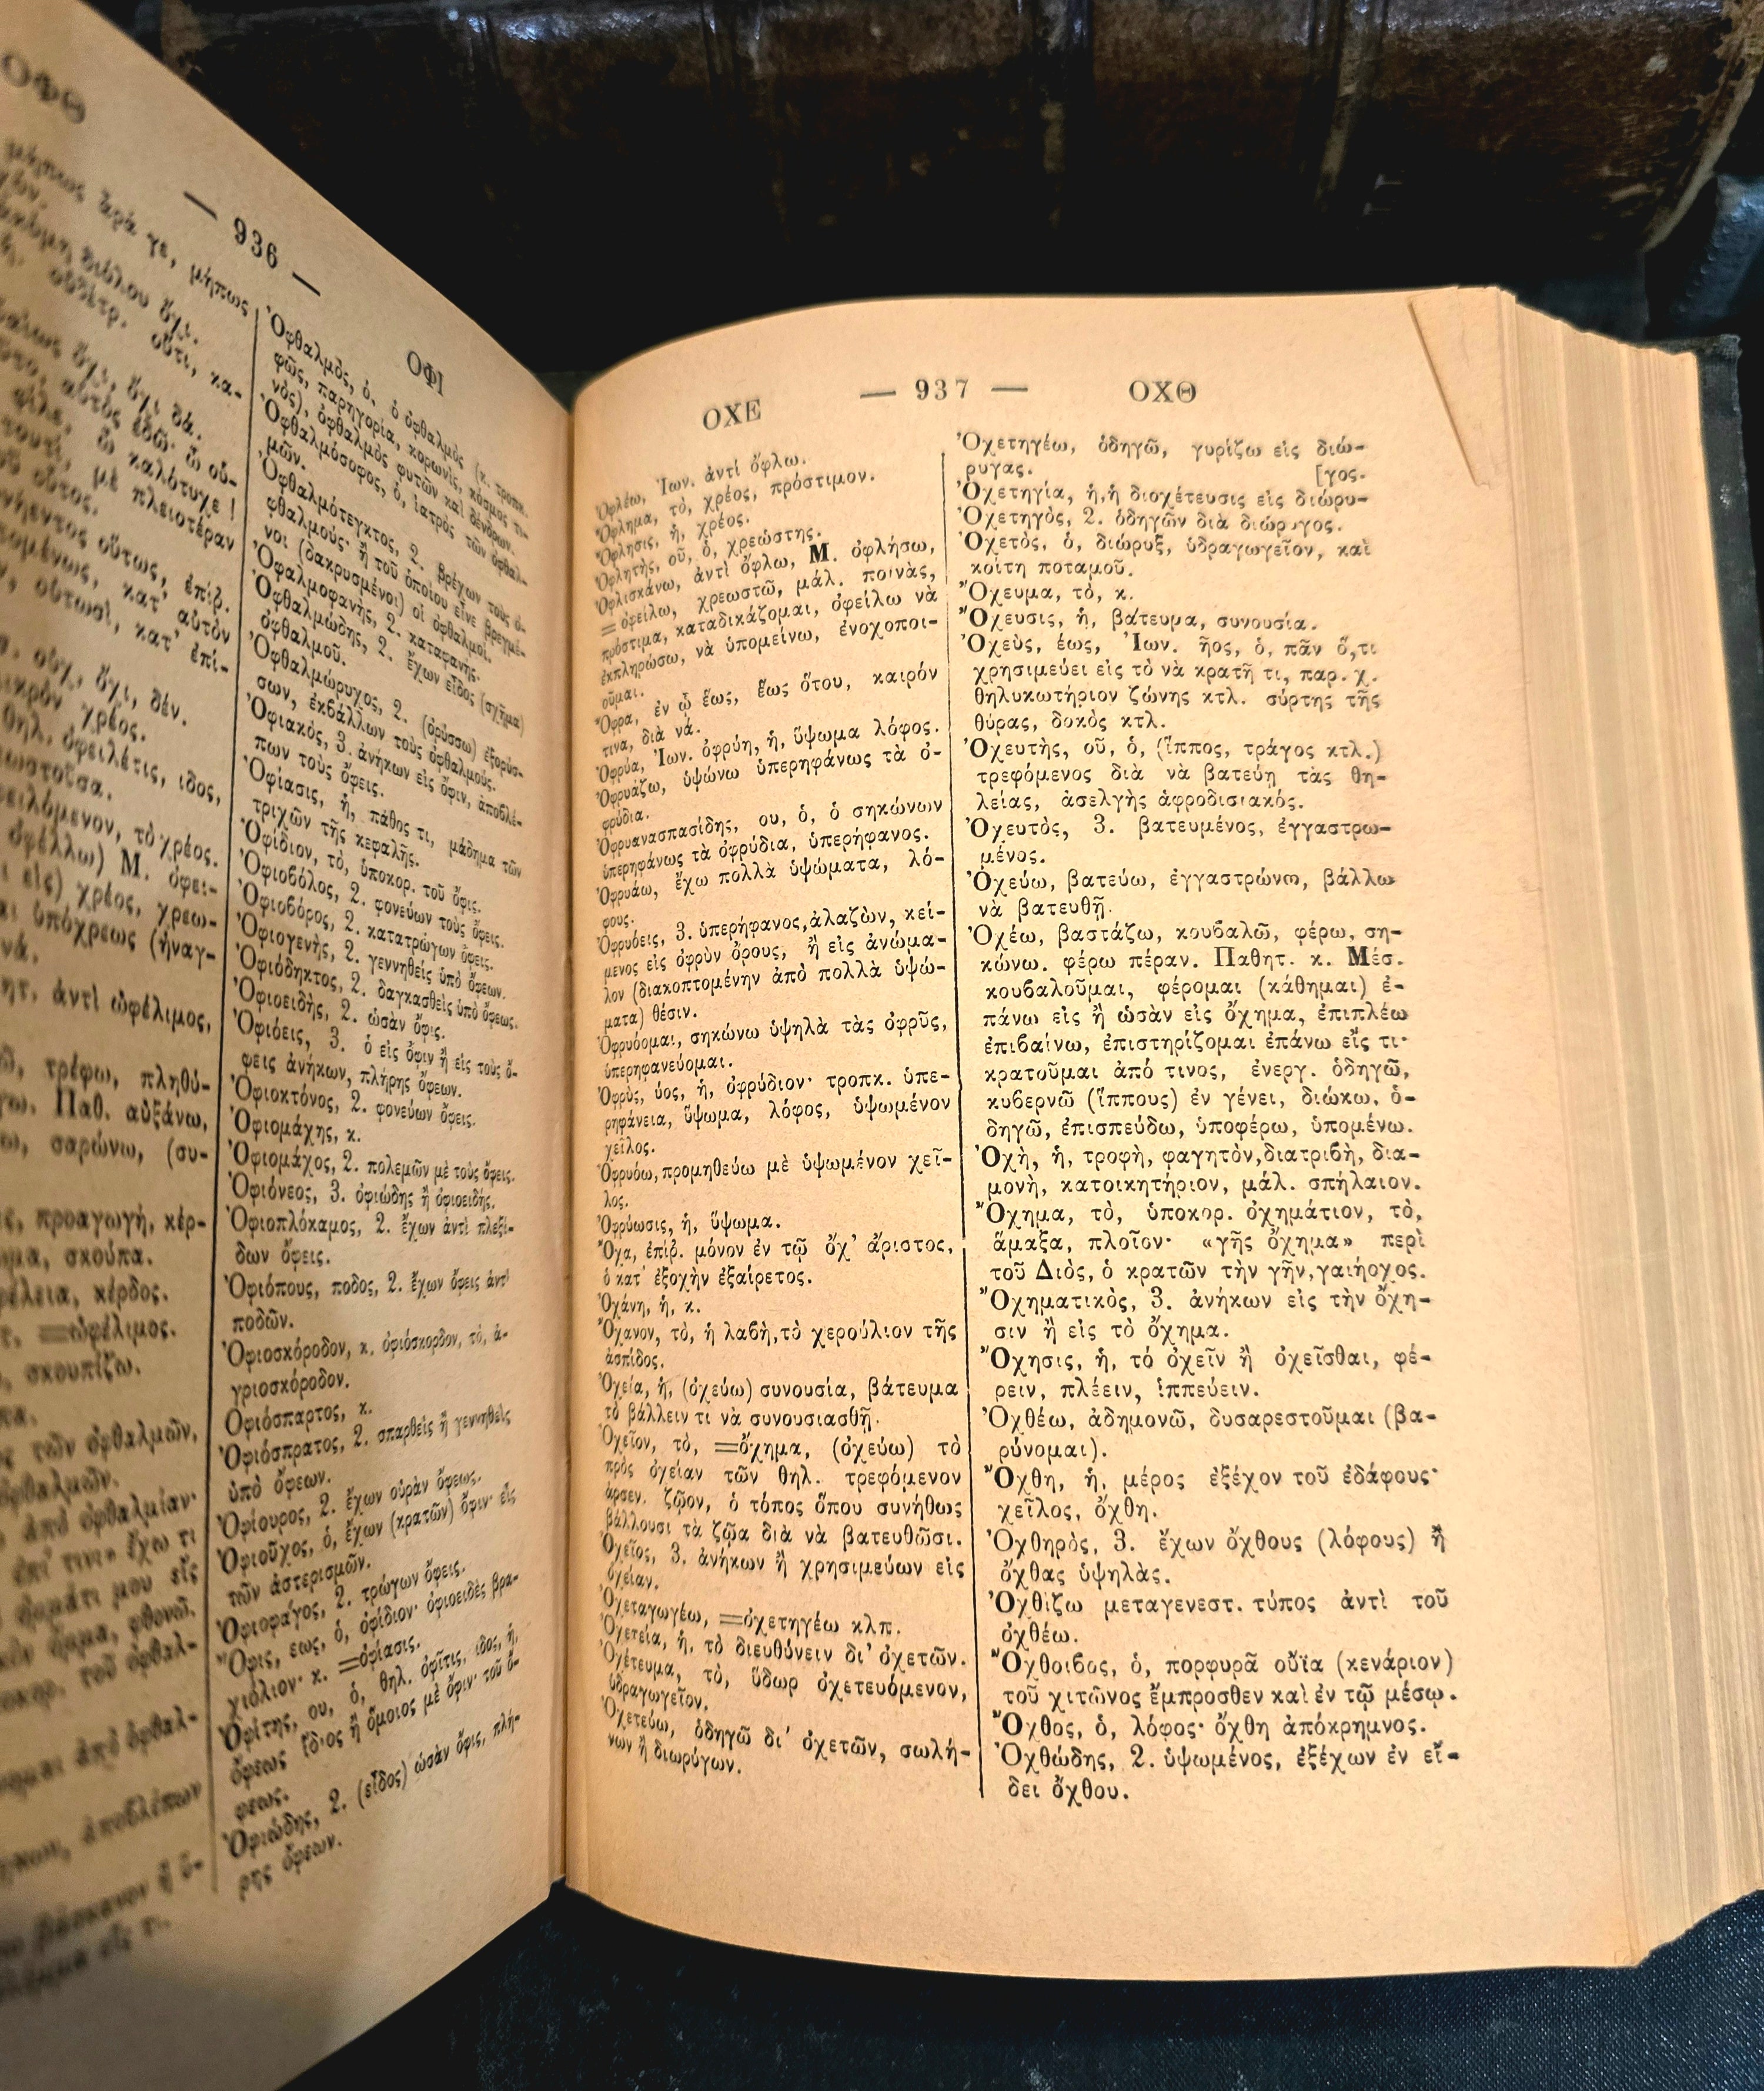 ΟΦΘ
— 936 —
ΟΦΙ
ἄρά γε, μήπως
ὄχι.
οὔτι, κα-
ὄχι, ὄχι δά.
αὐτὸς ἐδῶ· ὦ οὗ-
ὦ καλότυχε!
μὲ πλειοτέραν
οὗτος.
οὕτως, ἐπίῤ.
κατ' αὐτὸν
οὑτωσὶ, κατ' ἐπί-
οὐχ, ὄχι, δέν.
χρέος.
θηλ. ὀφειλέτις, ιδος,
τὸ χρέος.
ὀφέλλω) Μ. ὀφει-
εἰς) χρέος, χρεω-
ὑπόχρεως (ἠναγ-
νά.
ἀντὶ ὠφέλιμος,
τρέφω, πληθύ-
Παθ. αὐξάνω,
σαρώνω, (συ-
προαγωγή, κέρ-
σκούπα.
κέρδος.
=ὠφέλιμος.
σκουπίζω.
τῶν ὀφθαλμῶν,
ὀφθαλμῶν.
ἀπὸ ὀφθαλμίαν·
ἔχω τι
μου εἰς
φθονῶ.
τοῦ ὀφθαλ-
ἀπὸ ὀφθαλ-
ἀποβλέπων
βάσκανον ἢ
εἰς τι.
Ὀφθαλμὸς, ὁ. ὁ ὀφθαλμὸς (κ. τροπκ.
φῶς, παρηγορία, κορωνὶς, κόσμος τι-
νὸς), ὀφθαλμὸς φυτῶν καὶ δένδρων.
Ὀφθαλμόσοφος, ὁ, ἰατρὸς τῶν ὀφθαλ-
μῶν.
Ὀφθαλμότεγκτος, 2. βρέχων τοὺς ὀ-
φθαλμούς· ἢ τοῦ ὁποίου εἶνε βρεγμέ-
νοι (δακρυσμένοι) οἱ ὀφθαλμοί.
Ὀφαλμοφανὴς, 2. καταφανής.
Ὀφθαλμώδης, 2. ἔχων εἶδος (σχῆμα)
ὀφθαλμοῦ.
Ὀφθαλμώρυχος, 2. (ὀρύσσω) ἐξορύσ-
σων, ἐκβάλλων τοὺς ὀφθαλμούς.
Ὀφιακὸς, 3. ἀνήκων εἰς ὄφιν, ἀποβλέ-
πων τοὺς ὄφεις.
Ὀφίασις, ἡ, πάθος τι, μάδημα τῶν
τριχῶν τῆς κεφαλῆς.
Ὀφίδιον, τὸ, ὑποκορ. τοῦ ὄφις.
Ὀφιοβόλος, 2. φονεύων τοὺς ὄφεις.
Ὀφιοβόρος, 2. κατατρώγων ὄφεις.
Ὀφιογενὴς, 2. γεννηθεὶς ὑπὸ ὄφεων.
Ὀφιόδηκτος, 2. δαγκασθεὶς ὑπὸ ὄφεως.
Ὀφιοειδὴς, 2. ὡσὰν ὄφις.
Ὀφιόεις, 3. ὁ εἰς ὄφιν ἢ εἰς τοὺς ὄ-
φεις ἀνήκων, πλήρης ὄφεων.
Ὀφιοκτόνος, 2. φονεύων ὄφεις.
Ὀφιομάχης, κ.
Ὀφιομάχος, 2. πολεμῶν μὲ τοὺς ὄφεις.
Ὀφιόνεος, 3. ὀφιώδης ἢ ὀφιοειδής.
Ὀφιοπλόκαμος, 2. ἔχων ἀντὶ πλεξί-
δων ὄφεις.
Ὀφιόπους, ποδος, 2. ἔχων ὄφεις ἀντὶ
ποδῶν.
Ὀφιοσκόροδον, κ. ὀφιόσκορδον, τὸ, ἀ-
γριοσκόροδον.
Ὀφιόσπαρτος, κ.
Ὀφιόσπρατος, 2. σπαρθεὶς ἢ γεννηθεὶς
ὑπὸ ὄφεων.
Ὀφίουρος, 2. ἔχων οὐρὰν ὄφεως.
Ὀφιοῦχος, ὁ, ἔχων (κρατῶν) ὄφιν· εἷς
τῶν ἀστερισμῶν.
Ὀφιοφάγος, 2. τρώγων ὄφεις.
Ὄφις, εως, ὁ, ὀφίδιον· ὀφιοειδὲς βρα-
χιόλιον· κ. =ὀφίασις.
Ὀφίτης, ου, ὁ, θηλ. ὀφῖτις, ιδος, ἡ,
ὄφεως ἴδιος ἢ ὅμοιος μὲ ὄφιν· τοῦ ὄ-
φεως.
Ὀφιώδης, 2. (εἶδος) ὡσὰν ὄφις, πλή-
ρης ὄφεων.
ΟΧΕ
— 937 —
ΟΧΘ
Ὀφλέω, Ἰων. ἀντὶ ὄφλω.
Ὄφλημα, τὸ, χρέος, πρόστιμον.
Ὄφλησις, ἡ, χρέος.
Ὀφλητὴς, οῦ, ὁ, χρεώστης.
Ὀφλισκάνω, ἀντὶ ὄφλω, Μ. ὀφλήσω,
=ὀφείλω, χρεωστῶ, μάλ. ποινὰς,
πρόστιμα, καταδικάζομαι, ὀφείλω νὰ
ἐκπληρώσω, νὰ ὑπομείνω, ἐνοχοποι-
οῦμαι.
Ὄφρα, ἐν ᾧ ἕως, ἕως ὅτου, καιρόν
τινα, διὰ νά.
Ὀφρύα, Ἰων. ὀφρύη, ἡ, ὕψωμα λόφος.
Ὀφρυάζω, ὑψώνω ὑπερηφάνως τὰ ὀ-
φρύδια.
Ὀφρυανασπασίδης, ου, ὁ, ὁ σηκώνων
ὑπερηφάνως τὰ ὀφρύδια, ὑπερήφανος.
Ὀφρυάω, ἔχω πολλὰ ὑψώματα, λό-
φους.
Ὀφρυόεις, 3. ὑπερήφανος,ἀλαζὼν, κεί-
μενος εἰς ὀφρὺν ὄρους, ἢ εἰς ἀνώμα-
λον (διακοπτομένην ἀπὸ πολλὰ ὑψώ-
ματα) θέσιν.
Ὀφρυόομαι, σηκώνω ὑψηλὰ τὰς ὀφρῦς,
ὑπερηφανεύομαι.
Ὀφρὺς, ύος, ἡ, ὀφρύδιον· τροπκ. ὑπε-
ρηφάνεια, ὕψωμα, λόφος, ὑψωμένον
χεῖλος.
Ὀφρυόω,προμηθεύω μὲ ὑψωμένον χεῖ-
λος.
Ὀφρύωσις, ἡ, ὕψωμα.
Ὄχα, ἐπίῤ. μόνον ἐν τῷ ὄχ' ἄριστος,
ὁ κατ' ἐξοχὴν ἐξαίρετος.
Ὀχάνη, ἡ, κ.
Ὄχανον, τὸ, ἡ λαβὴ,τὸ χερούλιον τῆς
ἀσπίδος.
Ὀχεία, ἡ, (ὀχεύω) συνουσία, βάτευμα
τὸ βάλλειν τι νὰ συνουσιασθῇ.
Ὀχεῖον, τὸ, =ὄχημα, (ὀχεύω) τὸ
πρὸς ὀχείαν τῶν θηλ. τρεφόμενον
ἀρσεν. ζῷον, ὁ τόπος ὅπου συνήθως
βάλλουσι τὰ ζῷα διὰ νὰ βατευθῶσι.
Ὀχεῖος, 3. ἀνήκων ἢ χρησιμεύων εἰς
ὀχείαν.
Ὀχεταγωγέω, =ὀχετηγέω κλπ.
Ὀχετεία, ἡ, τὸ διευθύνειν δι' ὀχετῶν.
Ὀχέτευμα, τὸ, ὕδωρ ὀχετευόμενον,
ὑδραγωγεῖον.
Ὀχετεύω, ὁδηγῶ δι' ὀχετῶν, σωλή-
νων ἢ διωρύγων.
Ὀχετηγέω, ὁδηγῶ, γυρίζω εἰς διώ-
ρυγας. [γος.
Ὀχετηγία, ἡ,ἡ διοχέτευσις εἰς διώρυ-
Ὀχετηγὸς, 2. ὁδηγῶν διὰ διώρυγος.
Ὀχετὸς, ὁ, διώρυξ, ὑδραγωγεῖον, καὶ
κοίτη ποταμοῦ.
Ὄχευμα, τὸ, κ.
Ὄχευσις, ἡ, βάτευμα, συνουσία.
Ὀχεὺς, έως, Ἰων. ῆος, ὁ, πᾶν ὅ,τι
χρησιμεύει εἰς τὸ νὰ κρατῇ τι, παρ. χ.
θηλυκωτήριον ζώνης κτλ. σύρτης τῆς
θύρας, δοκὸς κτλ.
Ὀχευτὴς, οῦ, ὁ, (ἵππος, τράγος κτλ.)
τρεφόμενος διὰ νὰ βατεύῃ τὰς θη-
λείας, ἀσελγὴς ἀφροδισιακός.
Ὀχευτὸς, 3. βατευμένος, ἐγγαστρω-
μένος.
Ὀχεύω, βατεύω, ἐγγαστρώνω, βάλλω
νὰ βατευθῇ.
Ὀχέω, βαστάζω, κουβαλῶ, φέρω, ση-
κώνω. φέρω πέραν. Παθητ. κ. Μέσ.
κουβαλοῦμαι, φέρομαι (κάθημαι) ἐ-
πάνω εἰς ἢ ὡσὰν εἰς ὄχημα, ἐπιπλέω
ἐπιβαίνω, ἐπιστηρίζομαι ἐπάνω εἴς τι·
κρατοῦμαι ἀπό τινος, ἐνεργ. ὁδηγῶ,
κυβερνῶ (ἵππους) ἐν γένει, διώκω, ὁ-
δηγῶ, ἐπισπεύδω, ὑποφέρω, ὑπομένω.
Ὀχὴ, ἡ, τροφὴ, φαγητὸν,διατριβὴ, δια-
μονὴ, κατοικητήριον, μάλ. σπήλαιον.
Ὄχημα, τὸ, ὑποκορ. ὀχημάτιον, τὸ,
ἅμαξα, πλοῖον· «γῆς ὄχημα» περὶ
τοῦ Διὸς, ὁ κρατῶν τὴν γῆν,γαιήοχος.
Ὀχηματικὸς, 3. ἀνήκων εἰς τὴν ὄχη-
σιν ἢ εἰς τὸ ὄχημα.
Ὄχησις, ἡ, τὸ ὀχεῖν ἢ ὀχεῖσθαι, φέ-
ρειν, πλέειν, ἱππεύειν.
Ὀχθέω, ἀδημονῶ, δυσαρεστοῦμαι (βα-
ρύνομαι).
Ὄχθη, ἡ, μέρος ἐξέχον τοῦ ἐδάφους·
χεῖλος, ὄχθη.
Ὀχθηρὸς, 3. ἔχων ὄχθους (λόφους) ἢ
ὄχθας ὑψηλὰς.
Ὀχθίζω μεταγενεστ. τύπος ἀντὶ τοῦ
ὀχθέω.
Ὄχθοιβος, ὁ, πορφυρᾶ οὔϊα (κενάριον)
τοῦ χιτῶνος ἔμπροσθεν καὶ ἐν τῷ μέσῳ.
Ὄχθος, ὁ, λόφος· ὄχθη ἀπόκρημνος.
Ὀχθώδης, 2. ὑψωμένος, ἐξέχων ἐν εἴ-
δει ὄχθου.